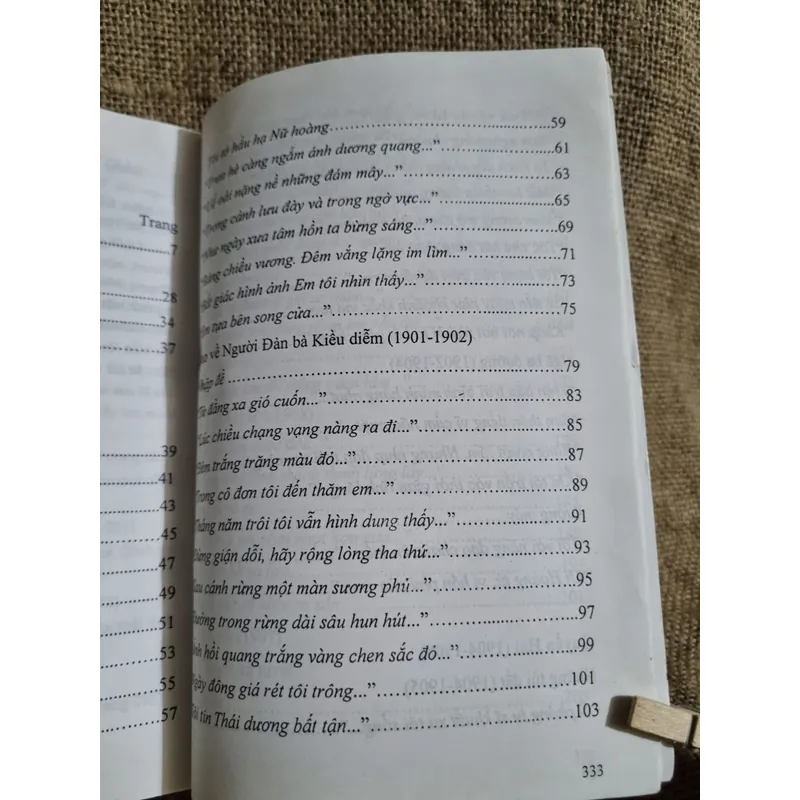 Trang
7
28
34
37
39
41
43
45
47
49
51
53
55
57
hầu hạ Nữ hoàng.......59
hè càng ngắm ánh dương quang...".......61
nặng nề những đám mây...".......63
cảnh lưu đày và trong ngờ vực...".......65
ngày xưa tâm hồn ta bừng sáng...".......69
chiều vương. Đêm vắng lặng im lìm...".......71
giác hình ảnh Em tôi nhìn thấy...".......73
tựa bên song cửa...".......75
về Người Đàn bà Kiều diễm (1901-1902)
đề.......79
"Từ đằng xa gió cuốn...".......83
"Lúc chiều chạng vạng nàng ra đi...".......85
trắng trăng màu đỏ...".......87
Trong cô đơn tôi đến thăm em...".......89
Tháng năm trôi tôi vẫn hình dung thấy...".......91
giận dỗi, hãy rộng lòng tha thứ...".......93
cánh rừng một màn sương phủ...".......95
Đường trong rừng dài sâu hun hút...".......97
hồi quang trắng vàng chen sắc đỏ...".......99
Ngày đông giá rét tôi trông...".......101
Tôi tin Thái dương bất tận...".......103
333